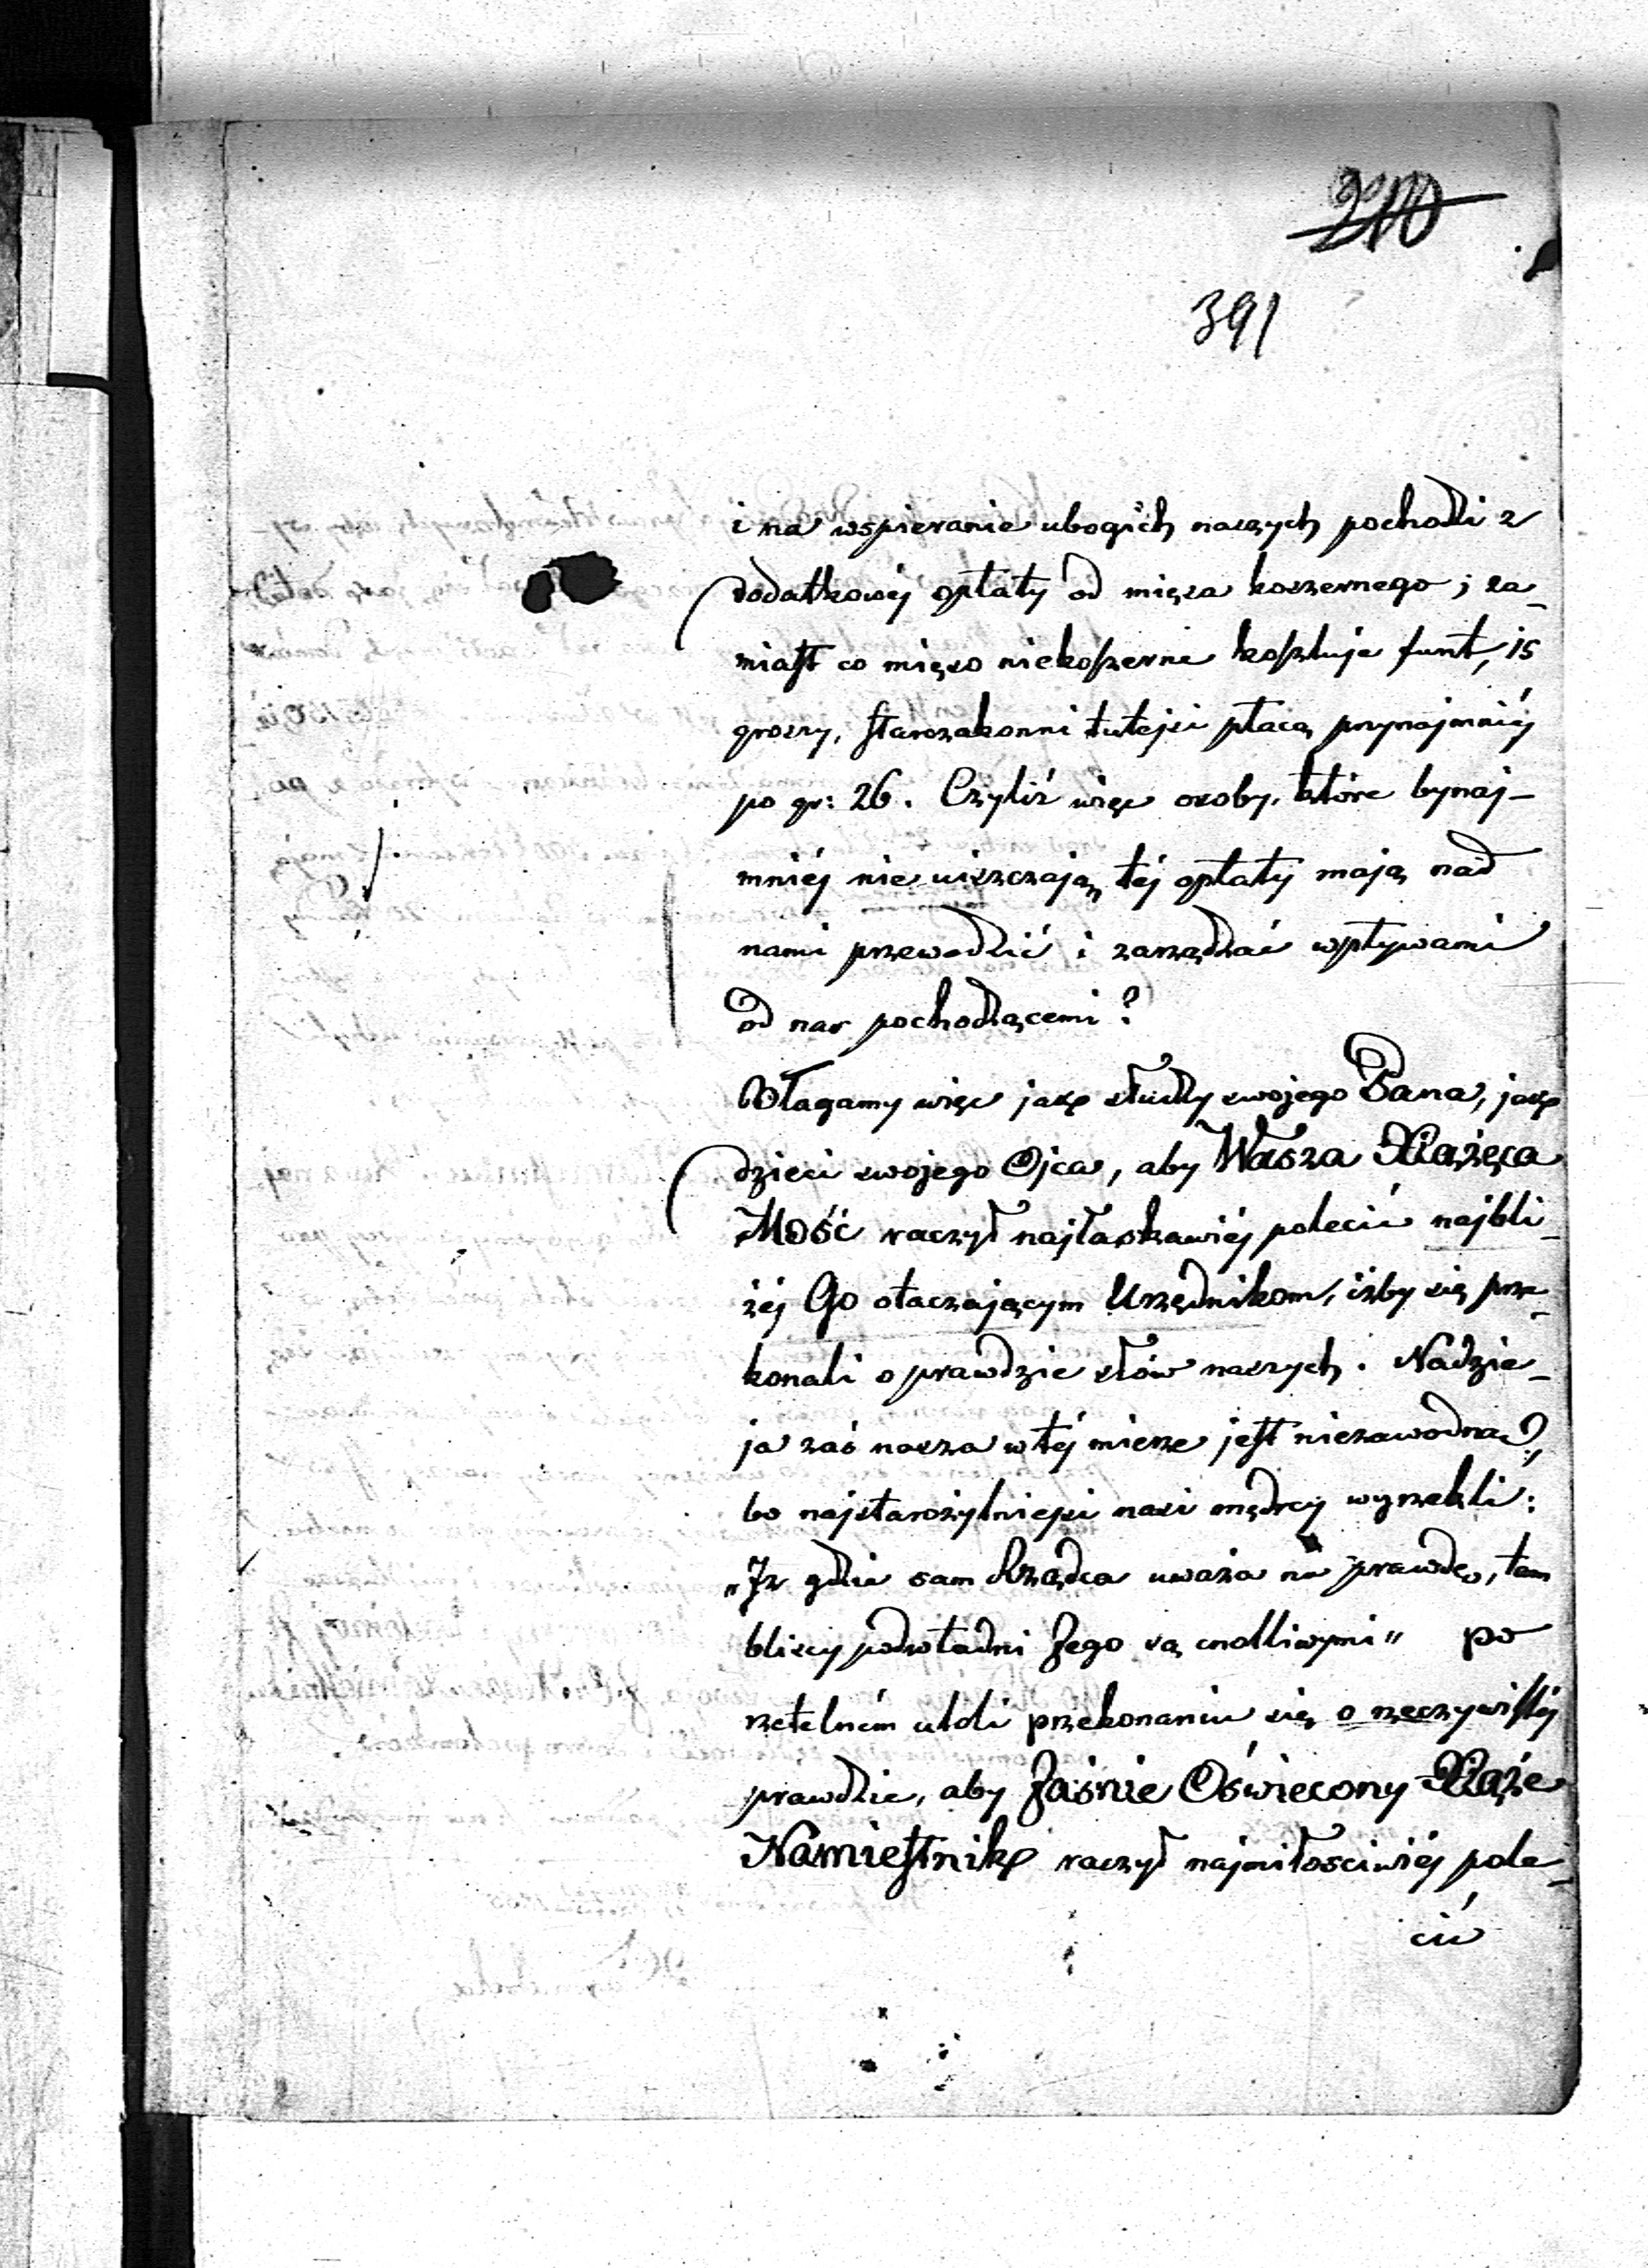 210
391
i na wspieranie ubogich naszych pochodzi z
dodatkowéj opłaty od mięsa koszernego; za-
miast co mięso niekoszerne kosztuje funt, 15
groszy, starozakonni tutejsi płacą przynajmniéj
po gr: 26. Czyliż więc osoby, które bynaj-
mniéj nie uiszczają téj opłaty mają nad
nami przewodzić i zarządzać wpływami
od nas pochodzącemi?
Błagamy więc jak słudzy swojego Pana, jak
dzieci swojego Ojca, aby Wasza Xiążęca
Mość raczył najłaskawiéj polecić najbli-
żéj Go otaczającym Urzędnikom, iżby się prze-
konali o prawdzie słów naszych. Nadzie-
ja zaś nasza w téj mierze jest niezawodna,
bo najstarożytniejsi nasi mędrcy wyrzekli:
„Iż gdzie sam Rządca uważa na prawdę, tam
bliscy podwładni Jego są cnotliwymi" po
rzetelném przekonaniu się o rzeczywistéj
prawdzie, aby Jaśnie Oświecony Xiąże
Namiestnik raczył najmiłościwiéj pole-
cić